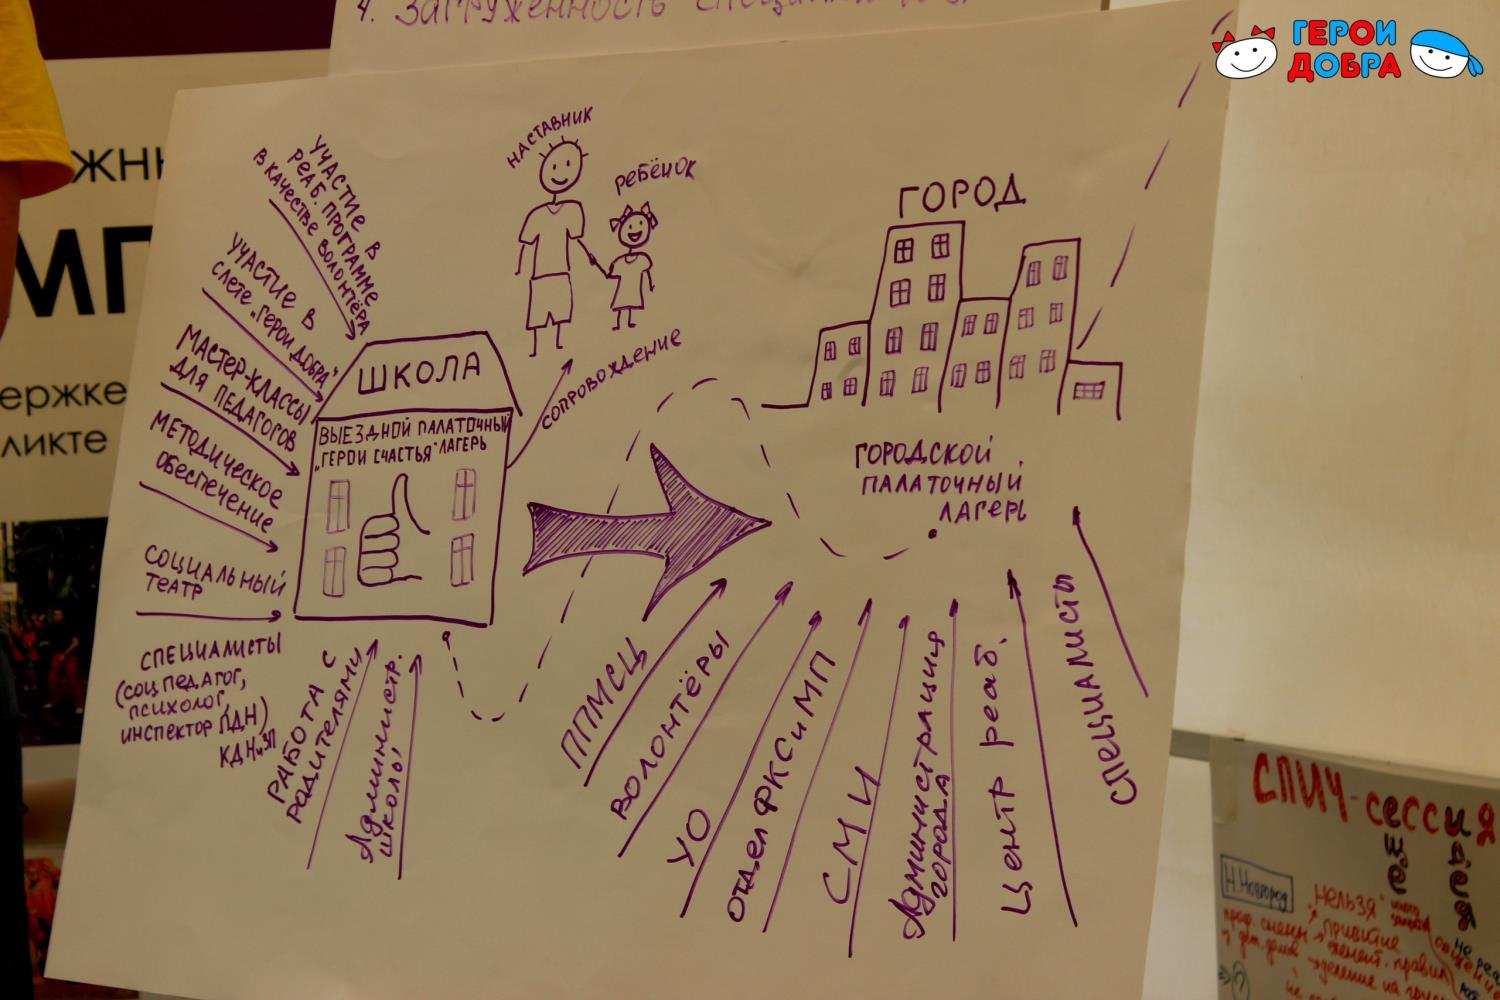 4. Загруженность
ГЕРОИ
ДОБРА
жн
МП
ержке
ликте
УЧАСТИЕ В
РЕАБ. ПРОГРАММЕ
В КАЧЕСТВЕ ВОЛОНТЁРА
УЧАСТИЕ В
СЛЕТЕ „ГЕРОИ ДОБРА"
МАСТЕР-КЛАССЫ
ДЛЯ ПЕДАГОГОВ
МЕТОДИЧЕСКОЕ
ОБЕСПЕЧЕНИЕ
СОЦИАЛЬНЫЙ
ТЕАТР
СПЕЦИАЛИСТЫ
(СОЦ ПЕДАГОГ,
ПСИХОЛОГ,
ИНСПЕКТОР ПДН)
КДНиЗП
РАБОТА С
РОДИТЕЛЯМИ
Администр.
школы,
ШКОЛА
ВЫЕЗДНОЙ ПАЛАТОЧНЫЙ
„ГЕРОИ СЧАСТЬЯ" ЛАГЕРЬ
НАСТАВНИК
РЕБЁНОК
СОПРОВОЖДЕНИЕ
ГОРОД
ГОРОДСКОЙ
ПАЛАТОЧНЫЙ
ЛАГЕРЬ
ППМСЦ
ВОЛОНТЁРЫ
УО
ОТДЕЛ ФКСиМП
СМИ
Администрация
города
Центр реаб.
СПЕЦИАЛИСТЫ
СПИЧ-сессия
Н.Новгород
нельзя
привитие